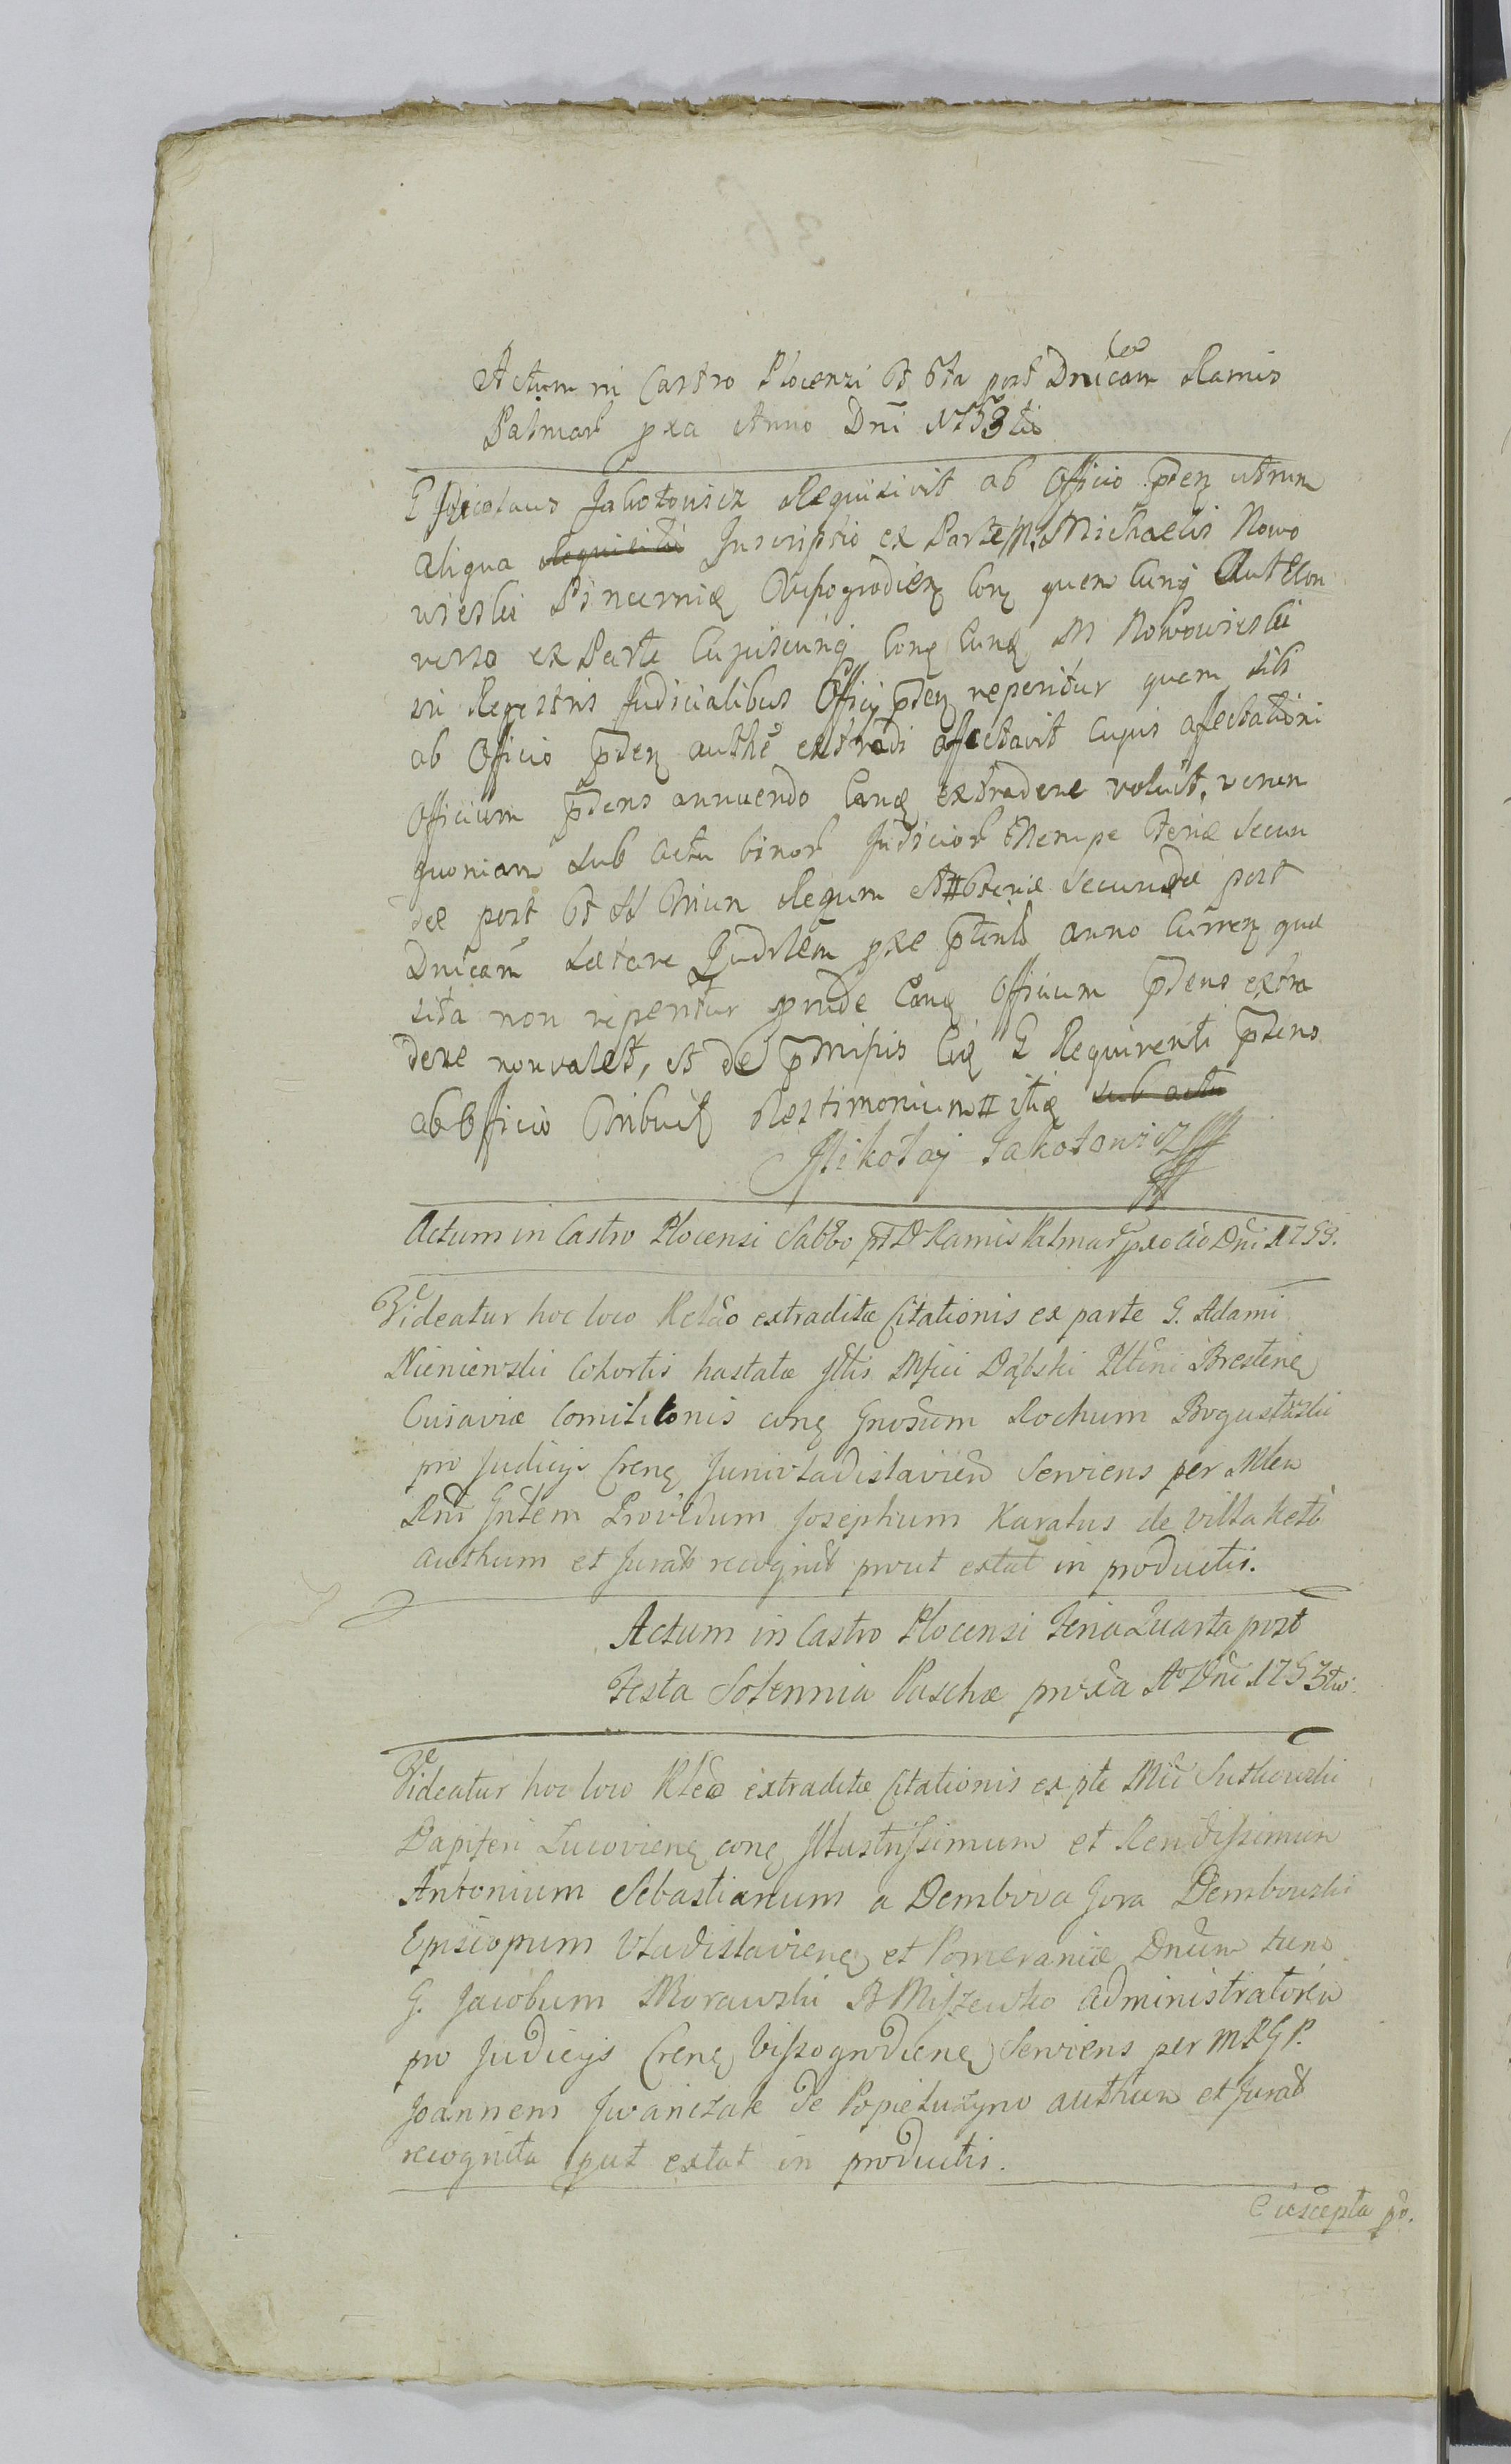 Actum in Castro Plocensi Fr 6ta post Dnicam Ramis
Palmar pxa Anno Dni 1753tio
G Nicolaus Jakotowicz Requisivit ab Officio pten utrum
aliqua Inscriptio ex Parte M. Michaelis Nowo
wieski Pincernæ Wyszogrodien con quem cunq Aut econ
verso ex Parte Cujuscunq con eund M Nowowieski
in Regestris Judicialibus Officij pten reperitur quam sibi
ab Officio pten authe extradi affectavit cujus affectationi
Officium ptens annuendo eand extradere voluit, verum
quoniam sub actu binor Judicior Nempe Feriæ Secun
dæ post Ft SS Trium Regum et Feriæ Secundæ post
Dnicam Lætare Qudrlem pxe pterito anno Curren quæ
sita non reperitur proinde eand Officium ptens extra
dere non valet, et de pmissis Eid G Requirenti ptens
ab Officio tribuit Testimonium
Mikołaj Jakotowicz
Actum in Castro Plocensi Sabbo pt D Ramis Palmar pxo Ao Dni 1753.
Videatur hoc loco Relao extraditæ Citationis ex parte G. Adami
Nieniewski Cohortis hastatæ Illtis Mfici Dąbski Plltini Brestens
Cujaviæ Comilitonis con Gnosum Rochum Bogustaski
pro Judicijs Cren Juniwladislavien Serviens per Mlem
Rni Gntem Providum Josephum Karatus de villa Ketb
authum et Jurat recognit prout extat in productis.
Actum in Castro Plocensi Feria Quarta post
Festa Solennia Paschæ proxa Ao Dni 1753tio.
Videatur hoc loco Rlea extraditæ Citationis ex pte Mci Sutkowski
Dapiferi Lucovien con Illustrissimum et Rendissimum
Antonium Sebastianum a Dembowa Gora Dembowski
Episcopum Vladislavien et Pomeraniæ Dnum tunc
G. Jacobum Morawski B Miszewko administratorem
pro Judicijs Cren Viszogrodien Serviens per MRGP.
Joannem Iwaniczak de Popielużyno authum et Jurat
recognita put extat in productis.